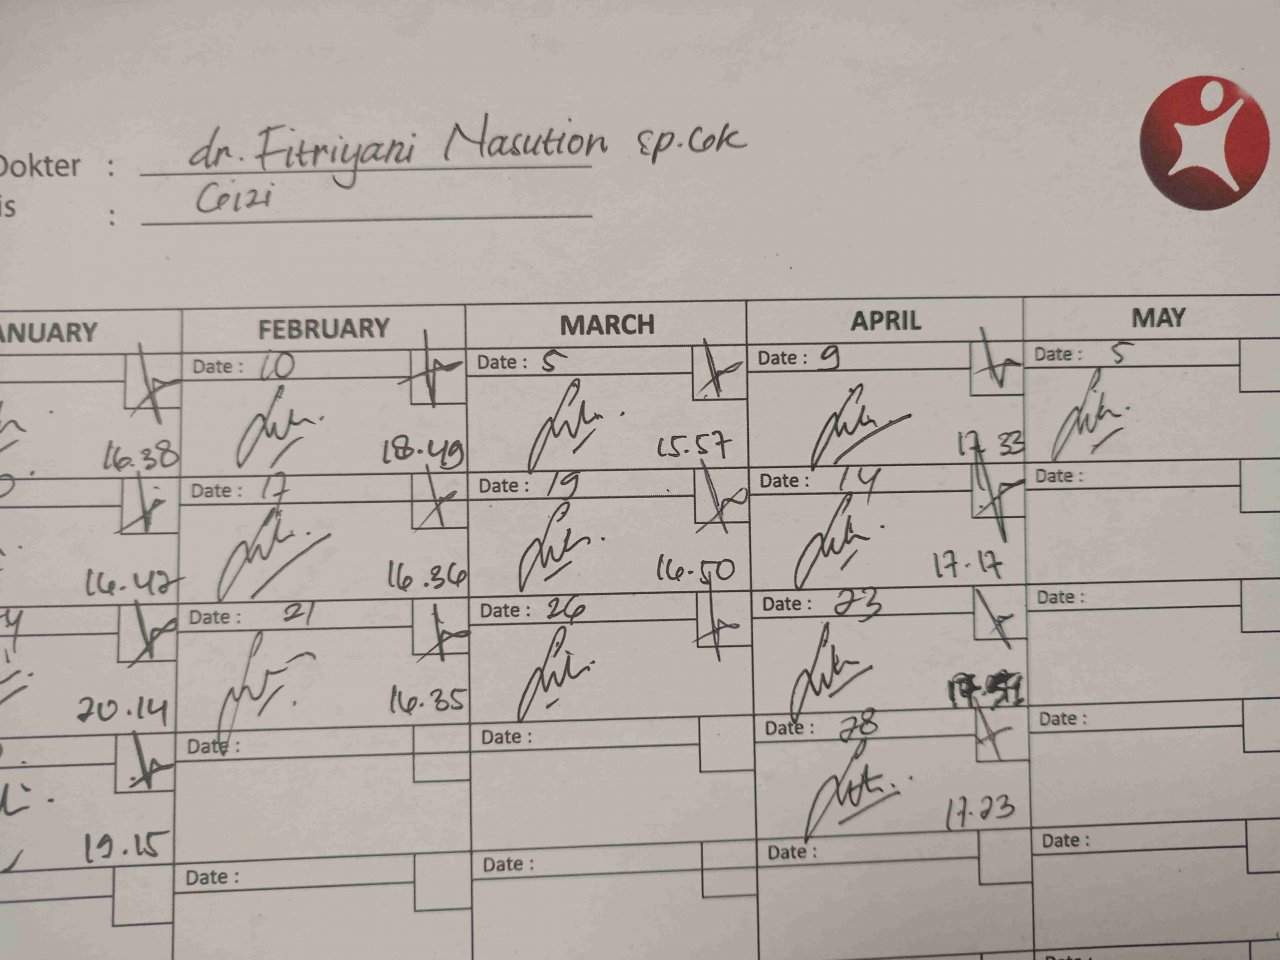 Dokter : dr. Fitriyani Nasution Sp.GK
is : Gizi
ANUARY FEBRUARY MARCH APRIL MAY
Date : 10 Date : 5 Date : 9 Date : 5
16.38 18.49 15.57 17.33
Date : 17 Date : 19 Date : 14 Date :
16.42 16.36 16.50 17.17
Date : 21 Date : 26 Date : 23 Date :
20.14 16.35
Date : Date : Date : 28 Date :
19.15 17.23
Date : Date : Date : Date :
Date :